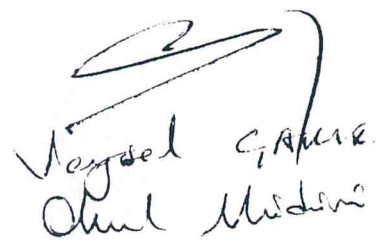 Veysel ÇAKIR
Okul Müdürü